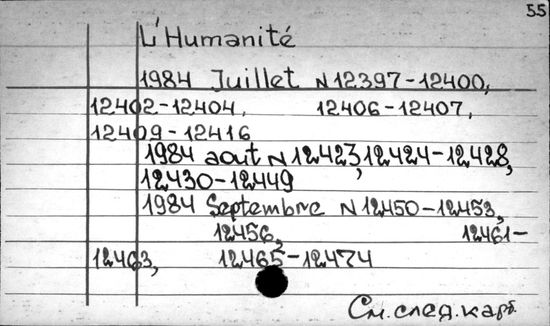 55
L'Humanité
1984 Juillet N 12397-12400,
12402-12404, 12406-12407,
12409-12416
1984 aout N 12423, 12424-12428,
12430-12449
1984 Septembre N 12450-12453,
12456, 12461-
12463, 12465-12474
См. след. карт.